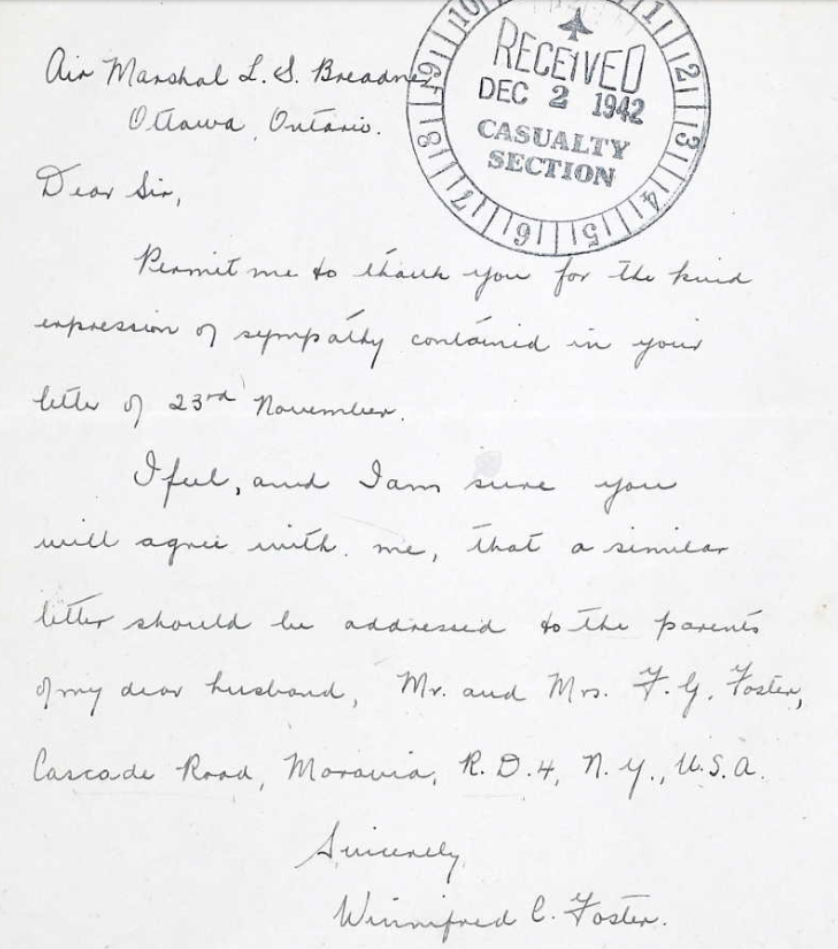 Air Marshal L. S. Breadner
Ottawa, Ontario.
RECEIVED
DEC 2 1942
CASUALTY
SECTION
10 1 2 3 4 5 6 7 8 9
Dear Sir,
Permit me to thank you for the kind
expression of sympathy contained in your
letter of 23rd November.
I feel, and I am sure you
will agree with me, that a similar
letter should be addressed to the parents
of my dear husband, Mr. and Mrs. F. G. Foster,
Cascade Road, Moravia, R.D.4, N.Y., U.S.A.
Sincerely
Winnifred C. Foster.